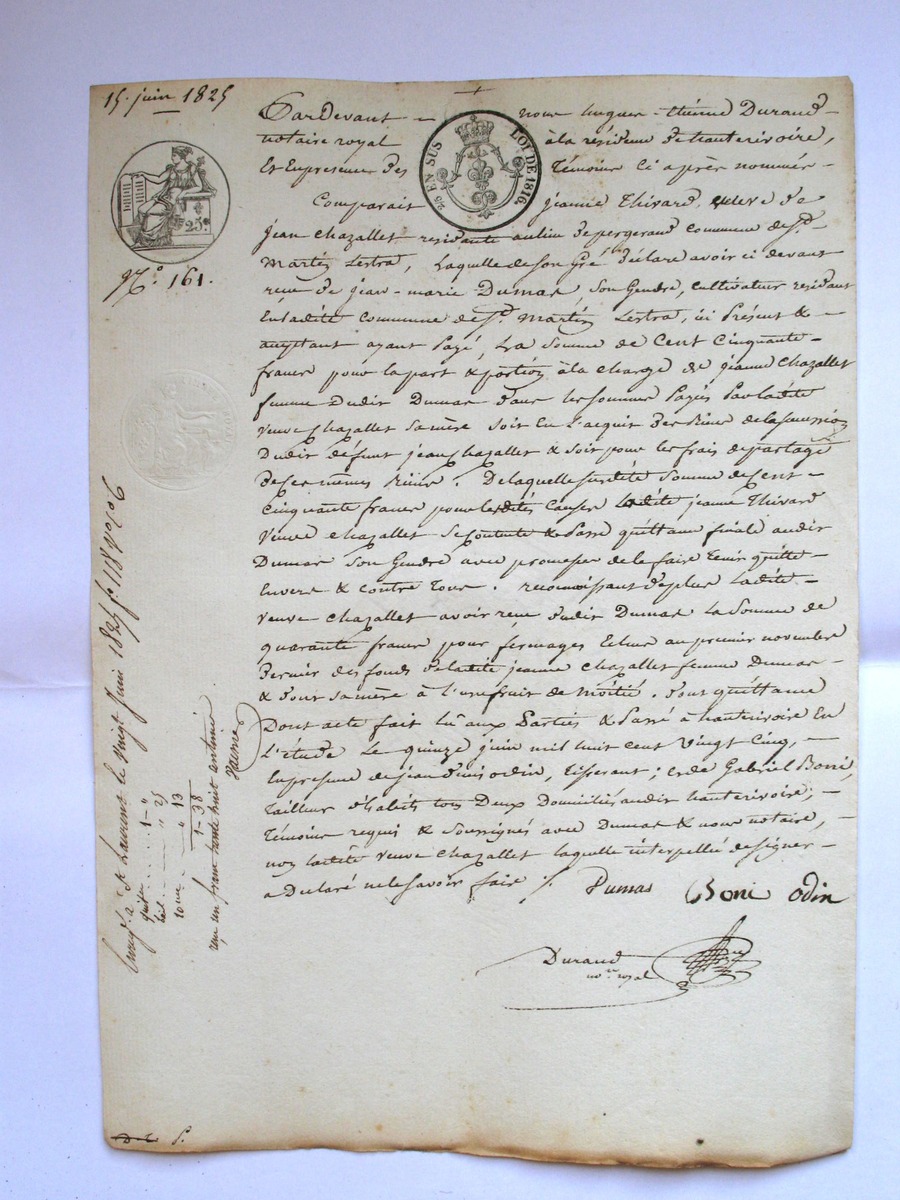 15. juin 1825
Pardevant - nous hugues-étienne Durand
notaire royal à la résidence de hauterivoire,
Et En presence des Témoins Ci après nommés -
2/10 EN SUS LOI DE 1816.
25c
N.º 161.
Comparait jeanne Thivard, veuve de
jean chazallet residante au lieu de pergerand commune de S.t
Martin Lestra, Laquelle de Son Gré déclare avoir ci devant
recu de jean-marie Dumas, Son Gendre, cultivateur residant
En ladite commune de S.t Martin Lestra, ici Présent &
acceptant ayant Payé, La Somme de Cent Cinquante
francs pour la part & portion à la charge de jeanne Chazallet
femme dudit Dumas dans les Sommes Payés Par ladite
veuve chazallet sa mère soit En l'acquit des de la succession
Dudit défunt jean chazallet & soit pour les frais de partage
de ces mêmes . De laquelle susdite Somme de Cent -
Cinquante francs pour les dites causes ladite jeanne Thivard
Veuve chazallet se contente & Passe quittance finale audit
Dumas Son Gendre avec promesse de le faire tenir quitte
Envers & contre Tous . reconnoissant de plus ladite -
veuve chazallet avoir reçu dudit Dumas la Somme de
quarante francs pour fermages Echus au premier novembre
Dernier des fonds de ladite jeanne chazallet femme Dumas -
& dont sa mère à l'usufruit de Moitié. Dont quittance
Dont acte fait lu aux Parties & Passé à hauterivoire En
L'étude le quinze juin mil huit cent vingt cinq, -
En presence de jean odin, tisserant ; & de Gabriel Boni,
Tailleur d'habits tous Deux Domiciliés audit hauterivoire ; -
Témoins requis & Soussignés avec Dumas & nous notaire, -
non ladite veuve chazallet laquelle interpellée de signer -
a Declaré ne le savoir faire ./. Dumas Boni Odin
Durand
no.re royal
Enreg.é à St Laurent le vingt juin 1825 f.º 118
quit. 1 - "
" 25
10.me " 13
1 - 38
reçu un franc trente huit centimes